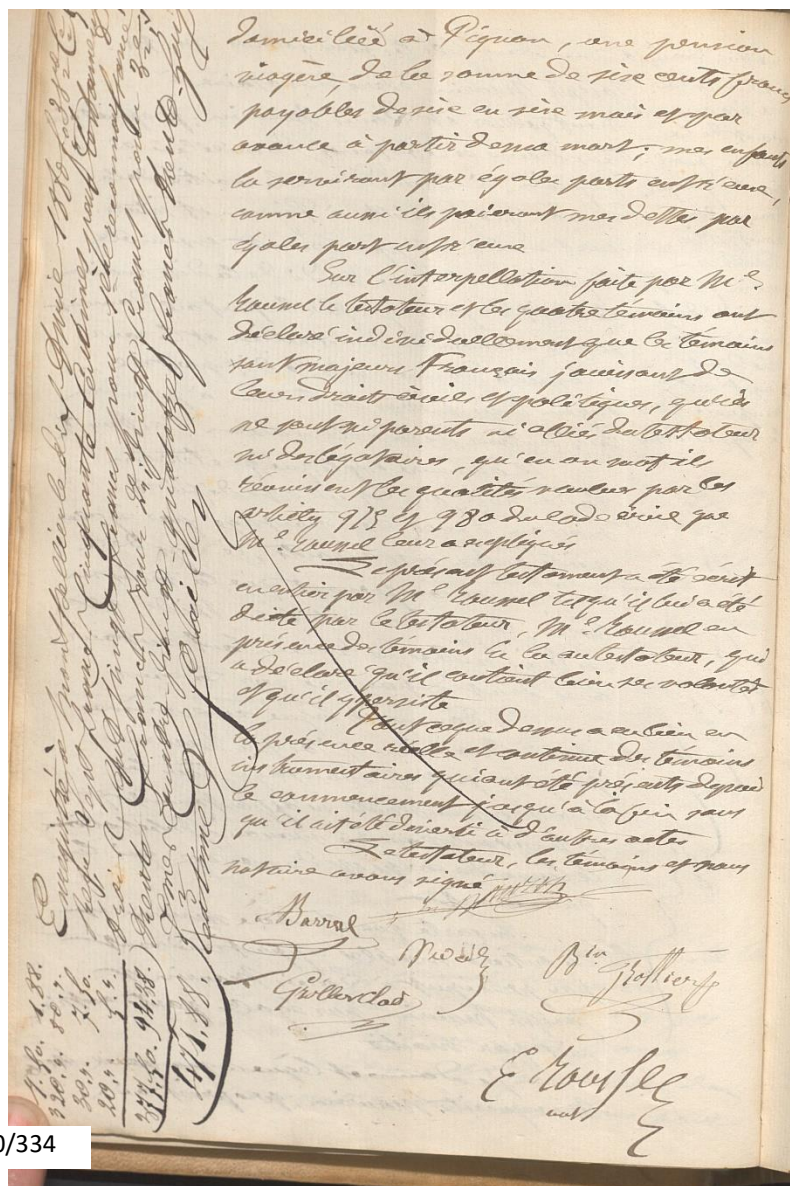 domiciliée à Pignan, une pension
viagère de la somme de six cents francs
payables de six en six mois et par
avance à partir de ma mort; mes enfants
la serviront par égales parts entr'eux,
comme aussi ils paieront mes dettes par
égales part entr'eux
Sur l'interpellation faite par Me
Roussel le testateur et les quatre témoins ont
déclaré individuellement que les témoins
sont majeurs Français jouissant de
leurs droits civils et politiques, qu'ils
ne sont ni parents ni alliés du testateur
ni des légataires, qu'en un mot ils
réunissent les qualités voulues par les
articles 975 et 980 du code civil que
Me Roussel leur a expliqués
Le présent testament a été écrit
en entier par Me Roussel tel qu'il lui a été
dicté par le testateur, Me Roussel en
présence des témoins l'a lu au testateur, qui
a déclaré qu'il contient bien ses volontés
et qu'il y persiste
Tout ce que dessus a eu lieu en
la présence réelle et continue des témoins
instrumentaires qui ont été présents depuis
le commencement jusqu'à la fin sans
qu'il ait été diverti à d'autres actes
Le testateur, les témoins et nous
notaire avons signé
Barral
Grollier
E Roussel
not
Enregistré à Montpellier le dix 1886 fo
Reçu sept francs cinquante centimes pour testament
trois cent vingt francs pour
trente francs pour
vingt francs pour
quatre vingt quatorze francs trente huit
centimes
7.50. 1.88.
320.". 80.".
30.". 7.50.
20.". 5.".
377.50. 94.38.
471.88.
0/334